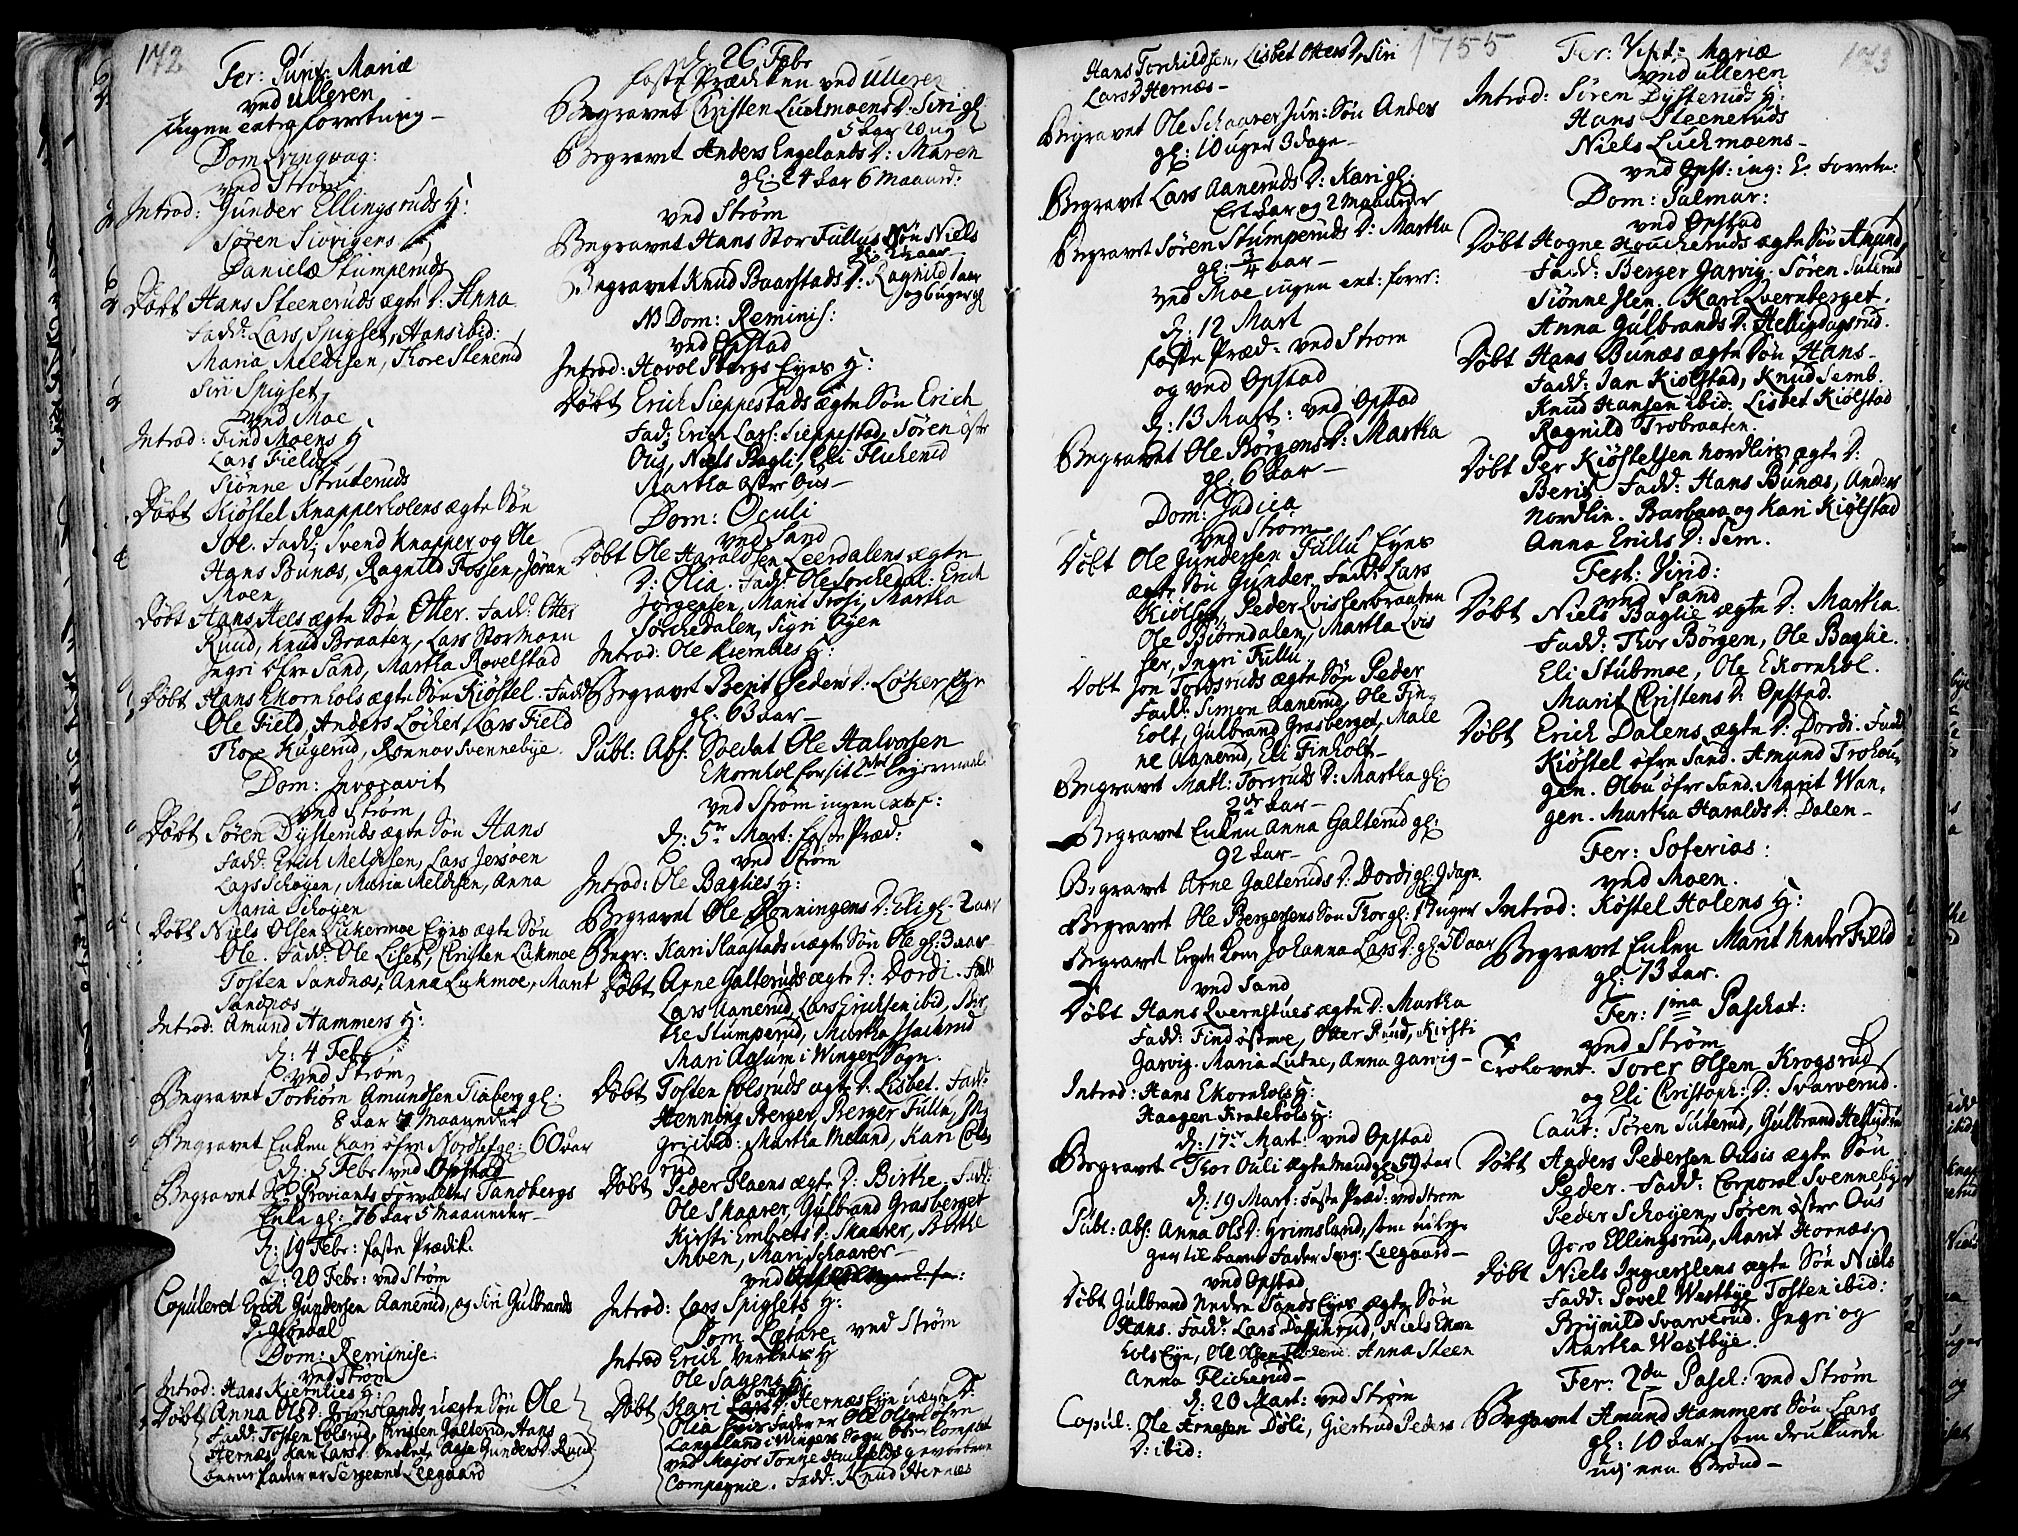 172
Fer: Purif: Mariæ
ved Ulleren
Ingen extra forretning
Dom: Qvinqvag:
ved Strøm
Introd: Gunder Ellingsruds H:
Søren Sivrigens
Daniel Stumperuds
Døbt Hans Steeneruds ægte D: Anna
Fadd: Lars Spigset, Hans ibid:
Maria Meldisen, Thore Stenerud
Siri Spigset
ved Moe
Introd: Find Moens H
Lars Fields
Siønne Struteruds
Døbt Kiøstel Knapperholens ægte Søn
Joe. Fadd: Svend Knapper og Ole
Hans Bunæs, Ragnild Fossen, Jøran
Moen
Døbt Hans Aels ægte Søn Otter. Fadd: Otter
Ruud, Knud Braaten, Lars Stormoen
Ingri Øfre Sand, Martha Rovelstad
Døbt Hans Ekornhols ægte Søn Kiøstel. Fadd
Ole Field, Anders Løcker, Lars Field
Thore Kugerud, Ronnov Svennebye.
Dom: Invocavit
ved Strøm
Døbt Søren Dysteruds ægte Søn Hans
Fadd: Erich Meldisen, Lars Jersøen
Lars Schøyen, Maria Meldisen, Anna
Maria Schøyen
Døbt Niels Olsen Luckermoe Eyes ægte Søn
Ole. Fadd: Ole Liset, Christen Lukmoe
Tosten Sandnæs, Anna Lukmoe, Marit
Sandnæs
Introd: Amund Hammers H:
d: 4 Febr
ved Strøm
Begravet Torbiørn Amundsen Tiaberg gl:
8 aar 7 Maaneder
Begravet Enken Kari øfre Nordset gl: 60 aar
d: 5 Febr: ved Opstad
Begravet Hr Proviants Forvalter Tandbergs
Enke gl: 76 aar 5 Maaneder
d: 19 Febr: faste Prædik.
d: 20 Febr: ved Strøm
Copuleret Erich Gundersen Aanerud, og Siri Gulbrands
D: Glørdal
Dom: Reminisc
ved Strøm
Introd: Hans Kiernlies H:
Døbt Anna Ols D: Grimslands uægte Søn Ole
Fadd: Tosten Colsrud, Christen Galterud, Hans
Hernæs, Kari Lars D: Verket, Aase Gunders D: Ruud
barnefader er Sergeant Leegaard
d: 26 Febr
faste Prædiken ved Ulleren
Begravet Christen Luckmoens D: Siri gl:
5 aar 20 ug
Begravet Anders Engelands D: Maren
gl: 24 aar 6 Maaned:
ved Strøm
Begravet Hans Stor Fullus Søn Niels
Begravet Knud Baarstads D: Ragnild 1 aar
og 6 uger gl
NB Dom: Reminis:
ved Opstad
Introd: Hovol Sbergs Eyes H:
Døbt Erich Sieppestads ægte Søn Erich
Fad: Erich Lars: Sieppestad, Søren østr
Ous, Niels Bagli, Eli Flicherud
Martha østre Ous
Dom: Oculi
ved Sand
Døbt Ole Haraldsen Leerdalens ægte
D: Olia. Fadd: Ole Sorchedal: Erich
Jørgensen, Marit Trosi, Martha
Sorchedalen, Sigri Øyen
Introd: Ole Kiernlies H:
Begravet Berit Peders D: Løker Eye
gl: 63 aar
Publ: Abs: Soldat Ole Halvorsen
Ekornhol for sit 2det Leyermaal
ved Strøm ingen extr:
d: 5te Mart: faste Præd:
ved Strøm
Introd: Ole Baglies H:
Begravet Ole Rønningens D: Eli gl: 2 aar
Begr: Kari Slaastads uægte Søn Ole gl: 3 aar
Døbt Arne Galteruds ægte D: Dordi. Fadd
Lars Aanerud, Lars Erichsen ibid, Bir
the Stumperud, Martha Skackrud
Mari Aasum i Winger Sogn.
Døbt Tosten Colsruds ægte D: Lisbet. Fadd:
Henning Berger, Berger Fullu, In
gri ibid: Martha Meland, Kari Cols
rud
Døbt Peder Flaens ægte D: Birthe. Fadd:
Ole Skaarer, Gulbrand Grasberget
Kirsti Embrets D: Skaarer, Birthe
Moen, Mari Schaarer
ved
Introd: Lars Spigsets H:
Dom Lætare ved Strøm
Introd Erich Verkets H
Ole Sagens H:
Døbt Kari Lars D: Hernæs Eye uægte D:
Olia hvis Fader er Ole Olsen øfre
Langeland i Wingers Sogn
ved Major Tonne Huitfelds geworbene
Compagnie. Fadd: Knud Hernæs
1755
Hans Torkildsen, Lisbet Otters D, Siri
Lars D Hernæs
Begravet Ole Schaarer Jun: Søn Anders
gl: 10 uger 3 dage
Begravet Lars Aaneruds D: Kari gl:
Et aar og 2 Maaneder
Begravet Søren Stumperuds D: Martha
gl: 3/4 aar
ved Moe ingen ext: forr:
d: 12 Mart
faste Præd: ved Strøm
og ved Opstad
d: 13 Mart: ved Opstad
Begravet Ole Børgens D: Martha
gl: 6 aar
Dom: Judica
ved Strøm
Døbt Ole Gundersen Fullu Eyes
ægte Søn Gunder. Fadd: Lars
Kiølsen, Peder Qvisterbraaten
Ole Biørndalen, Martha Qvis
ter, Ingri Fullu
Døbt Jon Tordsruds ægte Søn Peder
Fadd: Simon Aanerud, Ole Fin
holt, Gulbrand Grasberget, Male
ne Aanerud, Eli Finholt
Begravet Matl: Torsruds D: Martha gl:
2de aar
Begravet Enken Anna Galterud gl:
92 aar
Begravet Arne Galteruds D: Dordi gl: 9 dage
Begravet Ole Bergersens Søn Thor gl: 17 uger
Begravet Legde Kone Johanna Lars D: gl: 50 aar
ved Sand
Døbt Hans Qvernstues ægte D: Martha
Fadd: Find østmoe, Otter Ruud, Kirsti
Garvig. Maria Lutne, Anna Garvig
Introd: Hans Ekornhols H:
Haagen Kratebøls H:
d: 17de Mart: ved Opstad
Begravet Thor Ouli ægte mand gl: 59 aar
d: 19 Mart: faste Præd: ved Strøm
Publ: Abs: Anna Ols D: Grimsland, som udleg
ger til barne Fader Serg: Leegaard
ved Opstad
Døbt Gulbrand Nedre Sands Eyes ægte Søn
Hans. Fadd: Lars Dassenrud, Niels Ekorn
hols Eye, Ole Olsen Flicherud Anna Steen
Anna Flicherud
d: 20 Mart: ved Strøm
Copul: Ole Arnesen Døli, Giertrud Peders
D: ibid:
173
Fer: Visit: Mariæ
ved Ulleren
Introd: Søren Dysteruds H:
Hans Steeneruds
Niels Luckmoens
ved Opst: ing: E: Forretn:
Dom: Palmar:
ved Opstad
Døbt Hogne Houckeruds ægte Søn Amund
Fadd: Berger Garvig. Søren Suterud
Siønne Jsen. Kari Qvernberget.
Anna Gulbrands D: Helligdagsrud.
Døbt Hans Bunæs ægte Søn Hans
Fadd: Jan Kiølstad, Knud Semb.
Knud Hansen ibid. Lisbet Kiølstad
Ragnild Trobraaten.
Døbt Per Kiøstelsen Nordlins ægte D:
Berit. Fadd: Hans Bunæs, Anders
Nordlin. Barbara og Kari Kiølstad
Anna Erichs D: Sem.
Fest: Virid:
ved Sand
Døbt Niels Baglie ægte D: Martha
Fadd: Thor Børgen, Ole Baglie.
Eli Stubmoe, Ole Ekornhol.
Marit Christens D: Opstad.
Døbt Erich Dalens ægte D: Dordi. Fadd
Kiøstel øfre Sand. Amund Trohou
gen. Olou øfre Sand. Marit Wan
gen. Martha Haralds D: Dalen
Fer: Soterias:
ved Moen.
Introd: Køstel Holens H:
Begravet Enken Marit Nedre Field
gl: 73 aar.
Fer: 1ma Paschat:
ved Strøm
Trolovet. Torer Olsen Krogsrud
og Eli Christoph: D: Svarverud.
Caut: Søren Suterud, Gulbrand
Døbt Anders Pedersen Ousis ægte Søn
Peder. Fadd: Corporal Svennebye
Peder Schøyen, Søren øster Ous
Goro Ellingsrud, Marit Hornæs
Døbt Niels Ingierslens ægte Søn Niels
Fadd: Povel Westbye Tosten ibid:
Brynild Svarverud. Ingri og
Martha Westbye.
Fer: 2da Pasch: ved Strøm
Begravet Amund Hammers Søn Lars
gl: 10 aar, som druknede
udj een Brønd